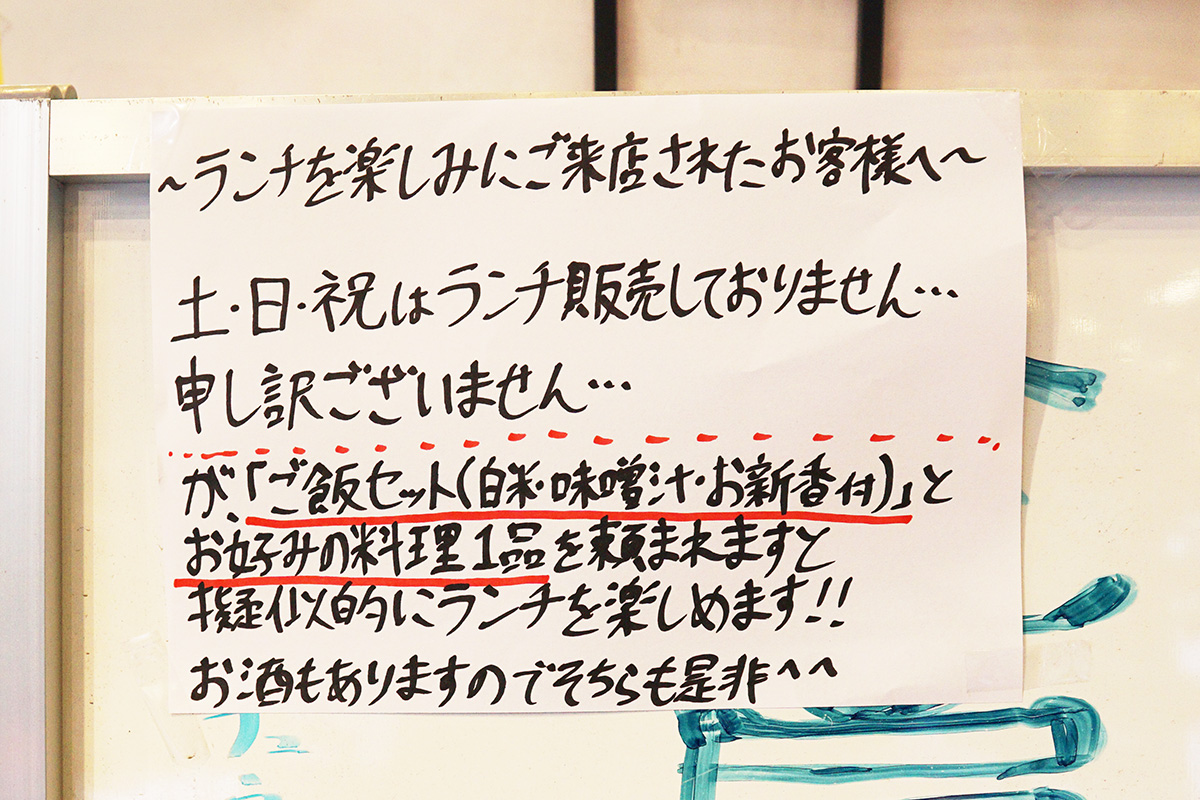 ~ランチを楽しみにご来店されたお客様へ~
土・日・祝はランチ販売しておりません…
申し訳ございません…
が、「ご飯セット(白米・味噌汁・お新香付)」と
お好みの料理1品を頼まれますと
擬似的にランチを楽しめます!!
お酒もありますのでそちらも是非^^